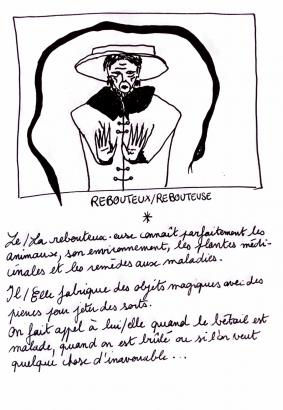 REBOUTEUX/REBOUTEUSE
*
Le/La rebouteux·euse connaît parfaitement les
animaux, son environnement, les plantes médi-
cinales et les remèdes aux maladies.
Il/Elle fabrique des objets magiques avec des
pierres pour jeter des sorts.
On fait appel à lui/elle quand le bétail est
malade, quand on est brûlé ou si l'on veut
quelque chose d'inavouable...